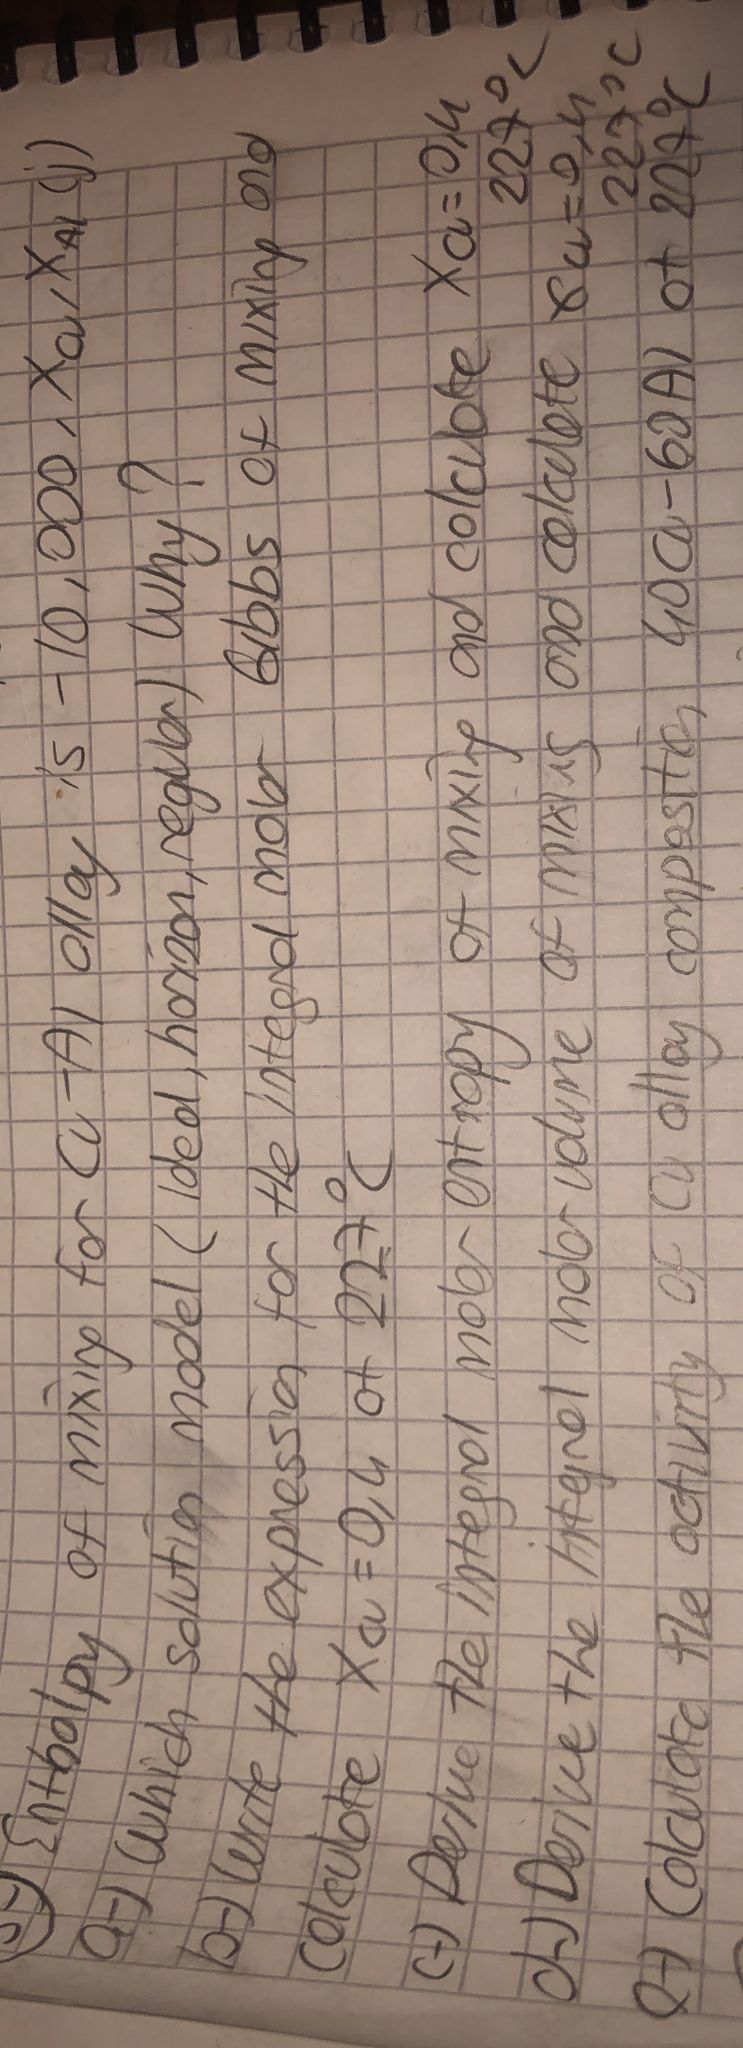 Enthalpy of mixing for Cu-Al alloy is -10,000. Xcu. XAl (j)
a-) Which solution model (ideal, horizon, regular) Why?
b-) Write the expression for the integral molar Gibbs of mixing and
calculate Xcu = 0,4 at 227°C
c-) Derive the integral molar entropy of mixing and calculate Xcu = 0,4
227°C
d-) Derive the integral molar volume of mixing and calculate Xcu = 0,4
227°C
e-) Calculate the activity of Cu alloy composition 40Cu-60Al at 227°C